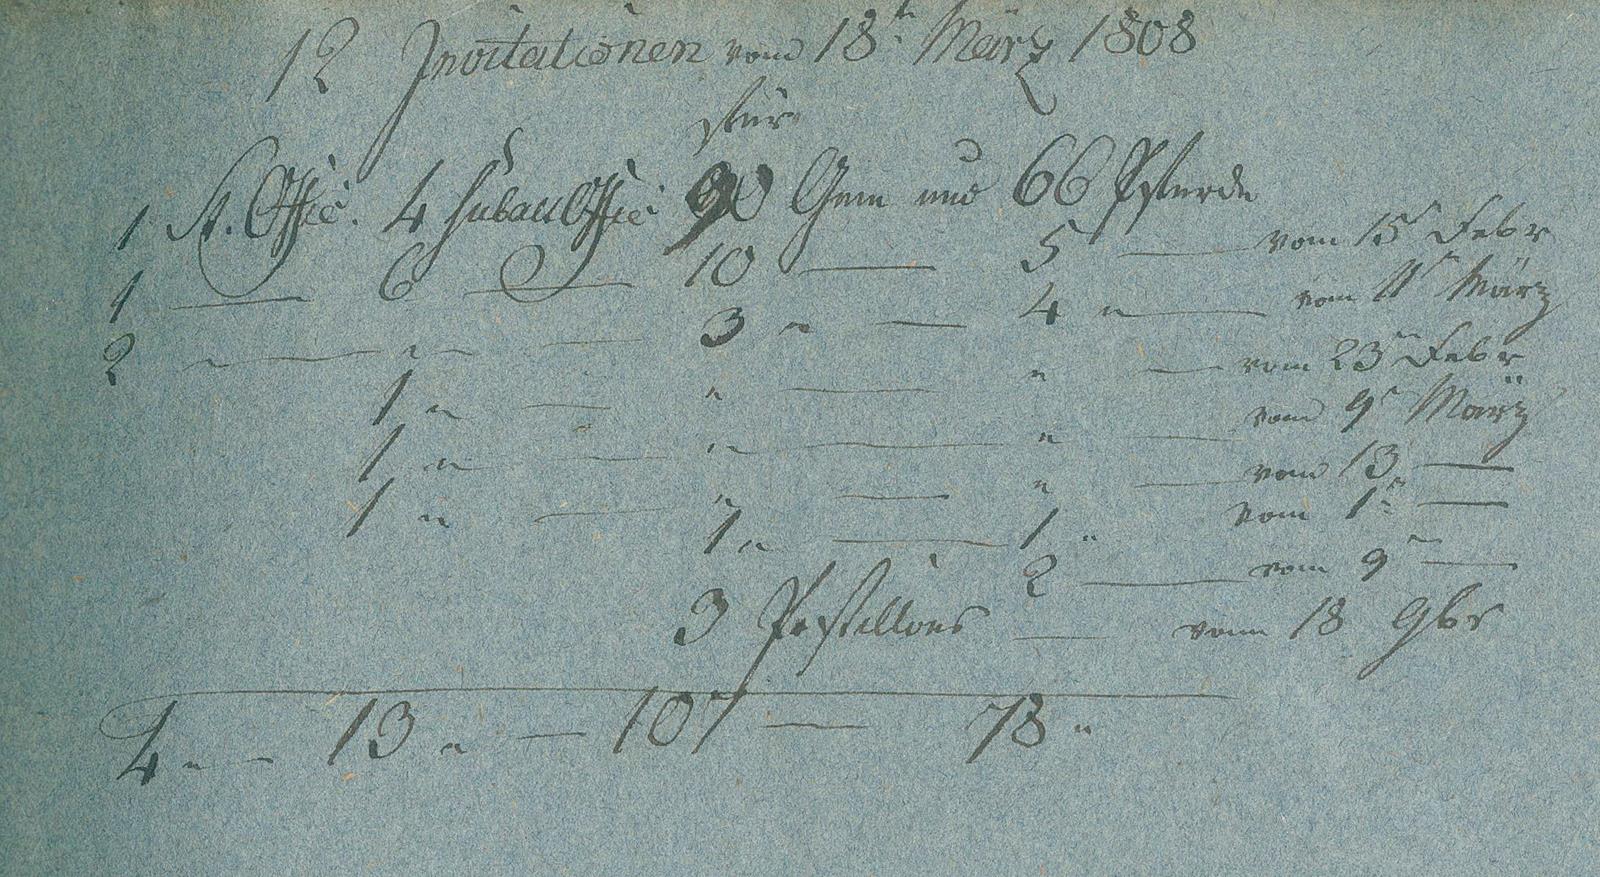 12 Invitationen vom 18t. März 1808
für
1 St. Offic. 4 Subalt Offic 90 Gem und 66 Pferde
1 — 6 — 10 — 5 — vom 15t Febr
2 " — " — 3 " — 4 " — vom 11t März
1 " — " — " — vom 23t Febr
1 " — " — " — vom 9t März
1 " — " — " — vom 13 —
1 " — 1 " vom 1t —
2 — vom 9t —
3 Postillons — vom 18 9br
4 " — 13 " — 107 — 78 "